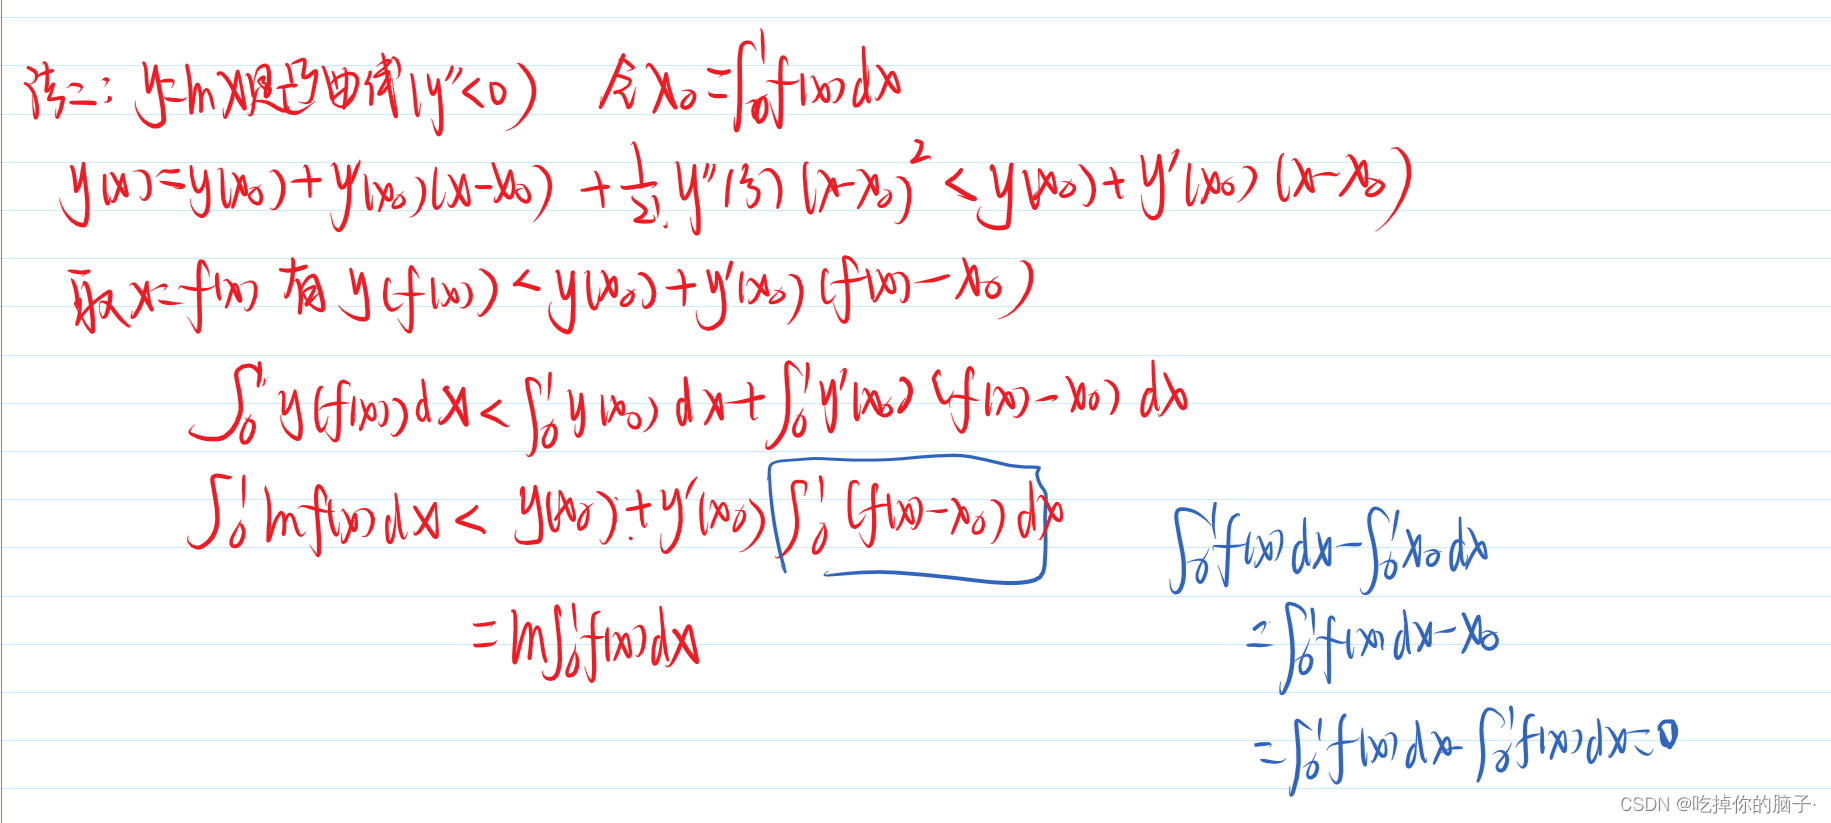 法二: y=ln x是凸曲线(y''<0) 令x₀=∫₀¹f(x)dx
y(x)=y(x₀)+y'(x₀)(x-x₀)+1/2! y''(ξ)(x-x₀)²<y(x₀)+y'(x₀)(x-x₀)
取x=f(x) 有 y(f(x))<y(x₀)+y'(x₀)(f(x)-x₀)
∫₀¹y(f(x))dx<∫₀¹y(x₀)dx+∫₀¹y'(x₀)(f(x)-x₀)dx
∫₀¹ln f(x)dx< y(x₀)+y'(x₀)∫₀¹(f(x)-x₀)dx
=ln∫₀¹f(x)dx
∫₀¹f(x)dx-∫₀¹x₀dx
=∫₀¹f(x)dx-x₀
=∫₀¹f(x)dx-∫₀¹f(x)dx=0
CSDN @吃掉你的脑子·